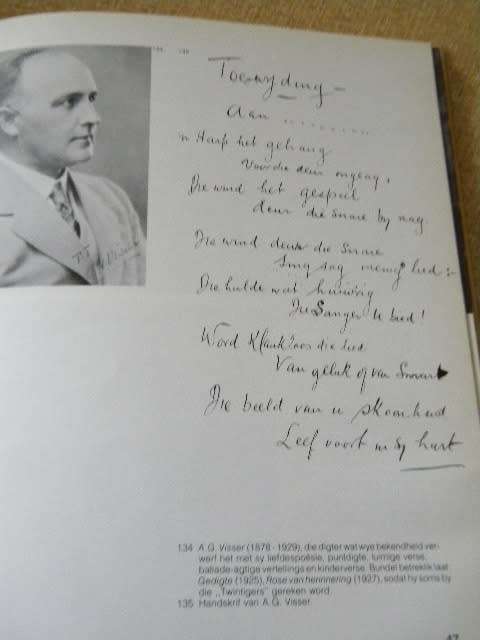 134 135
Toewyding —
Aan ..........
'n Harp het gehang
Voor die deur ongeag,
Die wind het gespeel
deur die snare by nag.
Die wind deur die Snare
Sing sag menig lied:-
Die hulde wat huiwrig
Die Sanger U bied!
Word Klankloos die lied
Van geluk of van Smart
Die beeld van u skoonheid
Leef voort in sy hart
134 A.G. Visser (1878 - 1929), die digter wat wye bekendheid ver-
werf het met sy liefdespoësie, puntdigte, luimige verse,
ballade-agtige vertellings en kinderverse. Bundel betreklik laat
Gedigte (1925), Rose van herinnering (1927), sodat hy soms by
die ,,Twintigers" gereken word.
135 Handskrif van A.G. Visser.